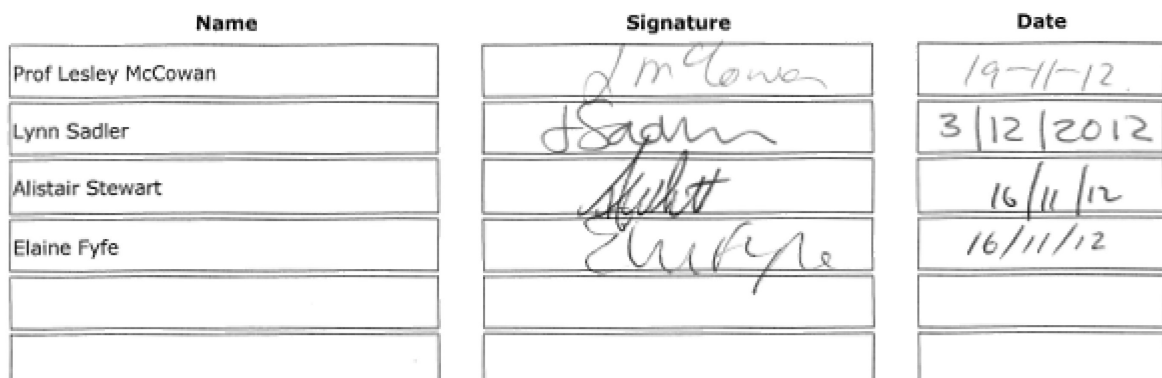 Name Signature Date
Prof Lesley McCowan L McCowan 19-11-12
Lynn Sadler LSadler 3/12/2012
Alistair Stewart 16/11/12
Elaine Fyfe E Fyfe 16/11/12